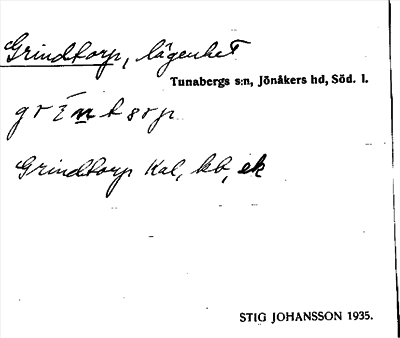 Grindtorp, lägenhet
Tunabergs s:n, Jönåkers hd, Söd. l.
Grindtorp Kal, kb, ek
STIG JOHANSSON 1935.